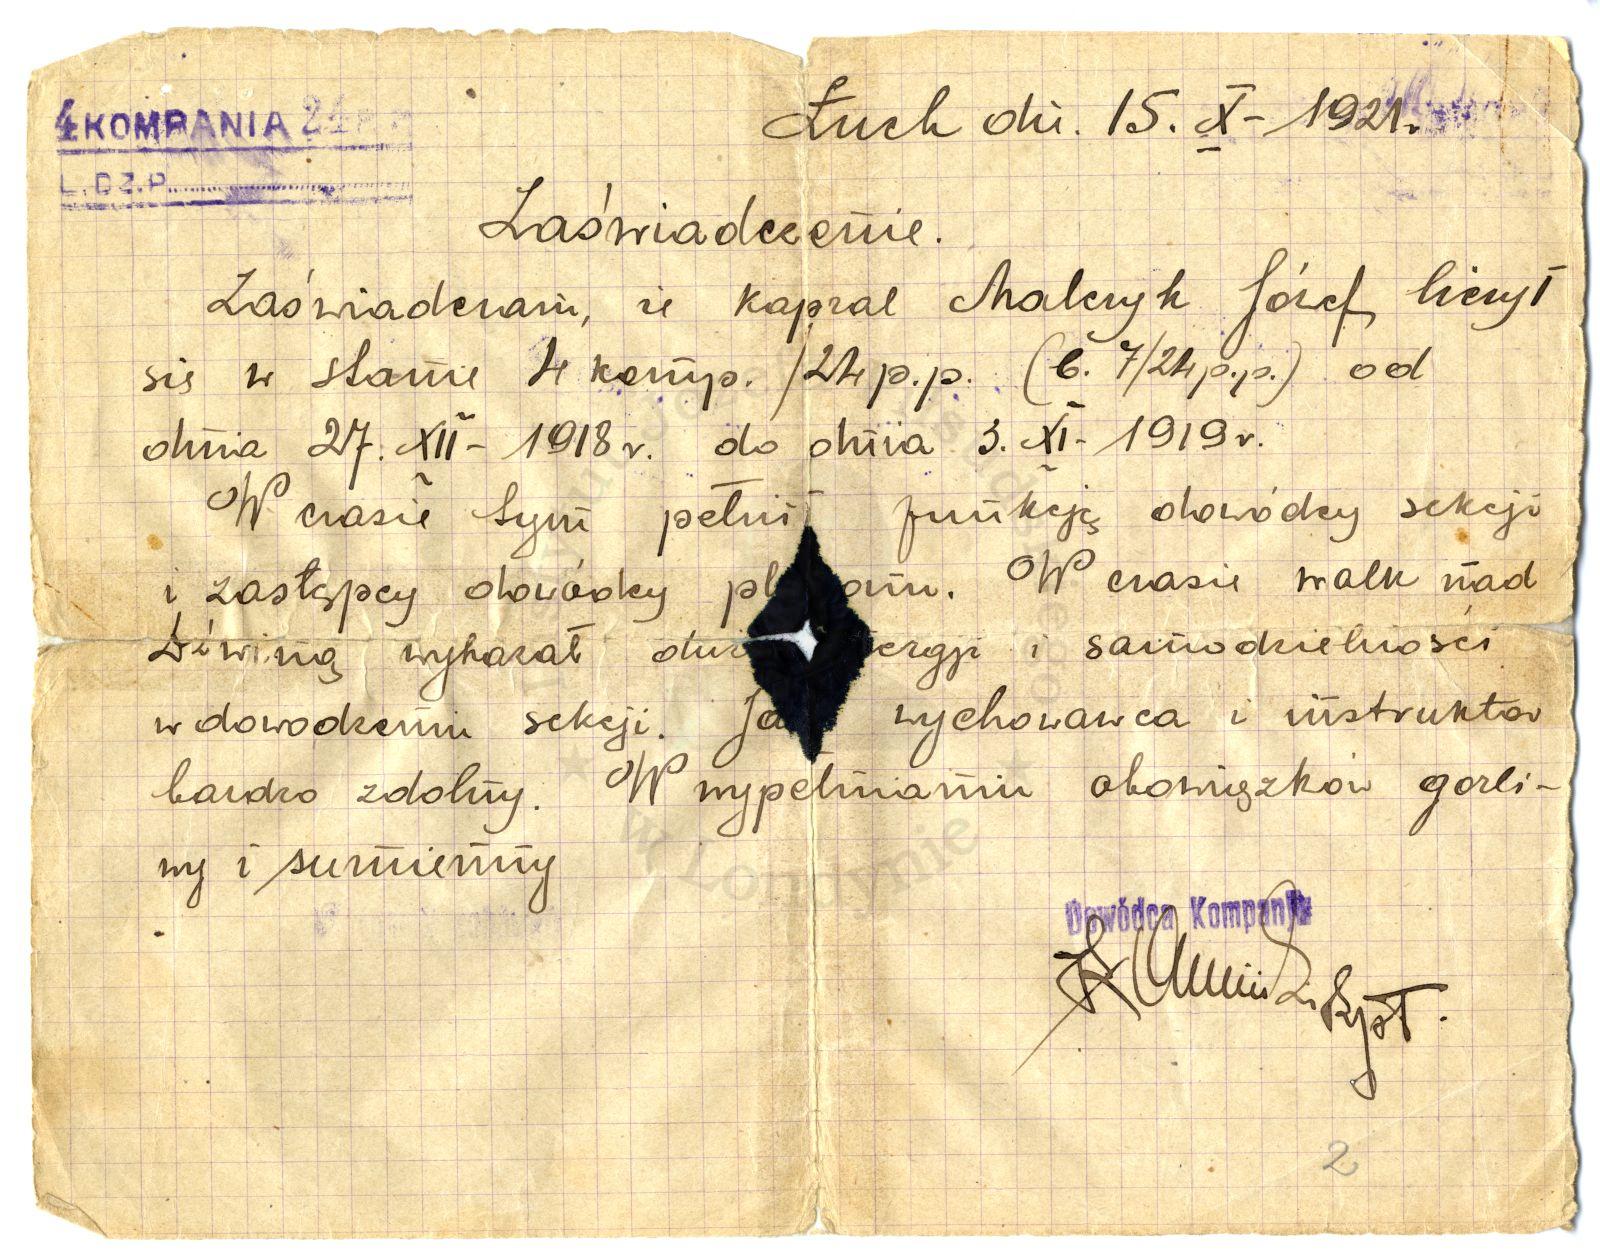 4 KOMPANIA 24 P.P.
L.DZ.P.
Łuck dn. 15. X - 1921.
Zaświadczenie.
Zaświadczam, że kapral Malczyk Józef liczył
się w stanie 4 komp. /24 p.p. (b. 7/24 p.p.) od
dnia 27. XII - 1918 r. do dnia 3. XI - 1919 r.
W czasie tym pełnił funkcję dowódcy sekcji
i zastępcy dowódcy pl onu. W czasie walk nad
Dźwiną wykazał duż ergji i samodzielności
w dowodzeniu sekcji. Ja wychowawca i instruktor
bardzo zdolny. W wypełnianiu obowiązków gorli-
wy i sumienny
Dowódca Kompanji
w Londynie
2